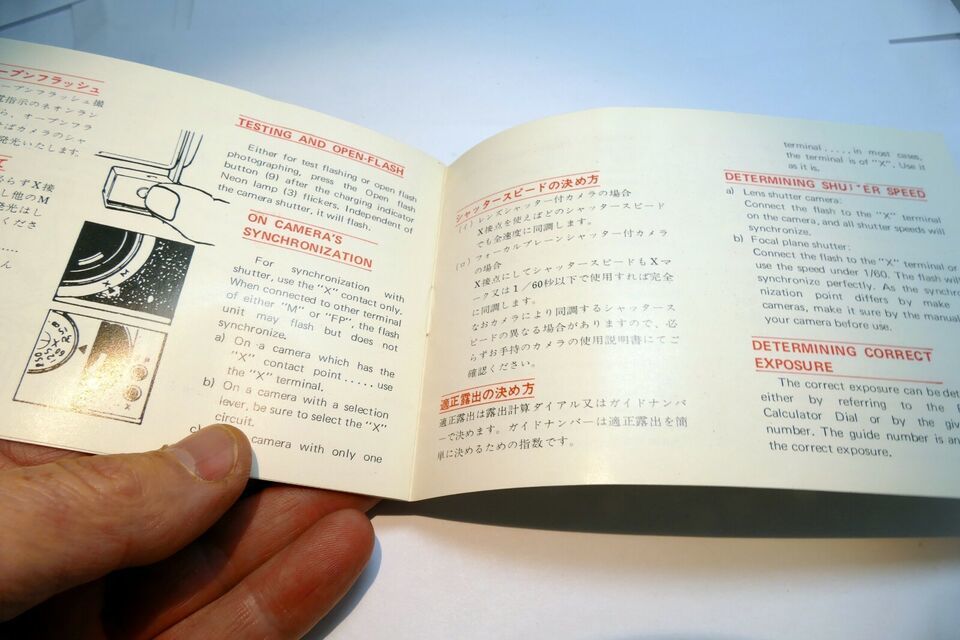 ープンフラッシュ
ープンフラッシュ撮
電指示のネオンラン
ら、オープンフラ
せばカメラのシャ
発光いたします。
らずX接
し他のM
発光はし
くださ
.....
ん
TESTING AND OPEN-FLASH
Either for test flashing or open flash
photographing, press the Open flash
button (9) after the charging indicator
Neon lamp (3) flickers. Independent of
the camera shutter, it will flash.
ON CAMERA'S
SYNCHRONIZATION
For synchronization with
shutter, use the "X" contact only.
When connected to other terminal
of either "M" or "Fp", the flash
unit may flash but does not
synchronize.
a) On a camera which has the
"X" contact point ..... use
the "X" terminal.
b) On a camera with a selection
lever, be sure to select the "X"
circuit.
camera with only one
シャッタースピードの決め方
(イ) レンズシャッター付カメラの場合
X接点を使えばどのシャッタースピード
でも全速度に同調します。
(ロ) フォーカルプレーンシャッター付カメラ
の場合
X接点にしてシャッタースピードもXマ
ーク又は1/60秒以下で使用すれば完全
に同調します。
なおカメラにより同調するシャッタース
ピードの異なる場合がありますので、必
らずお手持のカメラの使用説明書にてご
確認ください。
適正露出の決め方
適正露出は露出計算ダイアル又はガイドナンバ
ーで決めます。ガイドナンバーは適正露出を簡
単に決めるための指数です。
terminal ..... in most cases,
the terminal is of "X". Use it
as it is.
DETERMINING SHUTTER SPEED
a) Lens shutter camera:
Connect the flash to the "X" terminal
on the camera, and all shutter speeds will
synchronize.
b) Focal plane shutter:
Connect the flash to the "X" terminal or
use the speed under 1/60. The flash will
synchronize perfectly. As the synchro
nization point differs by make
cameras, make it sure by the manual
your camera before use.
DETERMINING CORRECT
EXPOSURE
The correct exposure can be det
either by referring to the E
Calculator Dial or by the give
number. The guide number is an
the correct exposure.